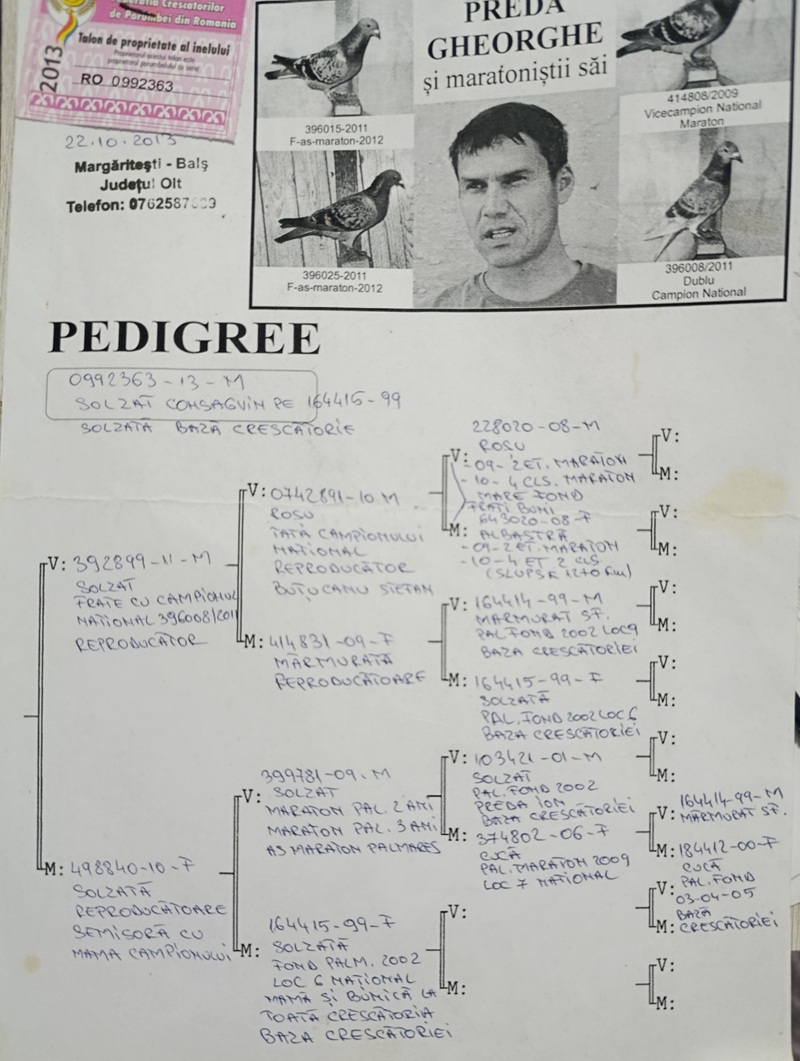 Crescatorilor
de Porumbei din Romania
Talon de proprietate al inelului
2013
RO 0992363
22.10.2013
Margăritești - Balș
Județul Olt
Telefon: 0762587
PREDA
GHEORGHE
și maratoniștii săi
396015-2011
F-as-maraton-2012
396025-2011
F-as-maraton-2012
414808/2009
Vicecampion National
Maraton
396008/2011
Dublu
Campion National
PEDIGREE
0992363-13-M
SOLZAT CONSAGVIN PE 164415-99
SOLZATĂ BAZĂ CRESCĂTORIE
V: 392899-11-M
SOLZAT
FRATE CU CAMPIONUL
NATIONAL 396008/2011
REPRODUCĂTOR
M: 498840-10-F
SOLZATĂ
REPRODUCĂTOARE
SEMISORĂ CU
MAMA CAMPIONULUI
V: 0742891-10 M
ROSU
TATĂ CAMPIONULUI
NAȚIONAL
REPRODUCĂTOR
BUȚUCANU STEFAN
M: 414831-09-F
MĂRMURATĂ
REPRODUCĂTOARE
V: 399781-09-M
SOLZAT
MARATON PAL. 2 ANI
MARATON PAL. 3 ANI
AS MARATON PALMARES
M: 164415-99-F
SOLZATĂ
FOND PALM. 2002
LOC 6 NAȚIONAL
MAMĂ ȘI BUNICĂ LA
TOATĂ CRESCĂTORIA
BAZA CRESCĂTORIEI
V: 228020-08-M
ROSU
-09-2 ET. MARATON
-10-4 CLS. MARATON
MARE FOND
FRATI BUNI
M: 643020-08-F
ALBASTRĂ
-09-2 ET. MARATON
-10-4 ET 2 CLS
(SLUPSK 1270 Km)
V: 164414-99-M
MARMURAT SF.
PAL FOND 2002 LOC9
BAZA CRESCĂTORIEI
M: 164415-99-F
SOLZATĂ
PAL. FOND 2002 LOC 6
BAZA CRESCĂTORIEI
V: 103421-01-M
SOLZAT
PAL. FOND 2002
PREDA ION
BAZA CRESCĂTORIEI
M: 374802-06-F
CUCĂ
PAL. MARATON 2009
LOC 7 NAȚIONAL
V:
M:
V:
M:
V:
M:
V:
M:
V:
M:
V:
M:
V: 164414-99-M
MĂRMURAT SF.
M: 184412-00-F
CUCĂ
PAL. FOND
03-04-05
BAZĂ
CRESCĂTORIEI
V:
M:
V:
M: